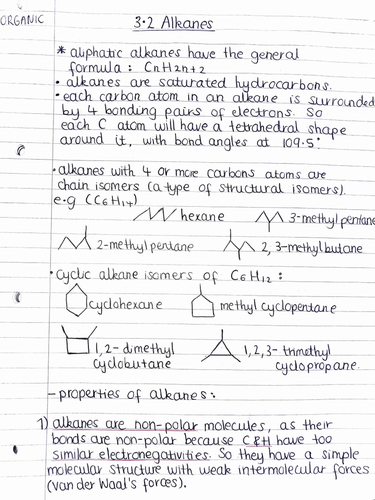 ORGANIC
3.2 Alkanes
* aliphatic alkanes have the general
formula: CnH2n+2
• alkanes are saturated hydrocarbons.
• each carbon atom in an alkane is surrounded
by 4 bonding pairs of electrons. So
each C atom will have a tetrahedral shape
around it, with bond angles at 109.5°
• alkanes with 4 or more carbons atoms are
chain isomers (a type of structural isomers).
e.g (C6H14)
hexane 3-methyl pentane
2-methyl pentane 2,3-methyl butane
• cyclic alkane isomers of C6H12:
cyclohexane methyl cyclopentane
1,2-dimethyl 1,2,3-trimethyl
cyclobutane cyclopropane.
- properties of alkanes:
1) alkanes are non-polar molecules, as their
bonds are non-polar because C & H have too
similar electronegativities. So they have a simple
molecular structure with weak intermolecular forces
(van der Waal's forces).